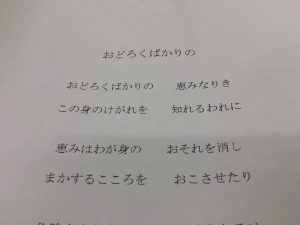 おどろくばかりの
おどろくばかりの　恵みなりき
この身のけがれを　知れるわれに
恵みはわが身の　おそれを消し
まかするこころを　おこさせたり